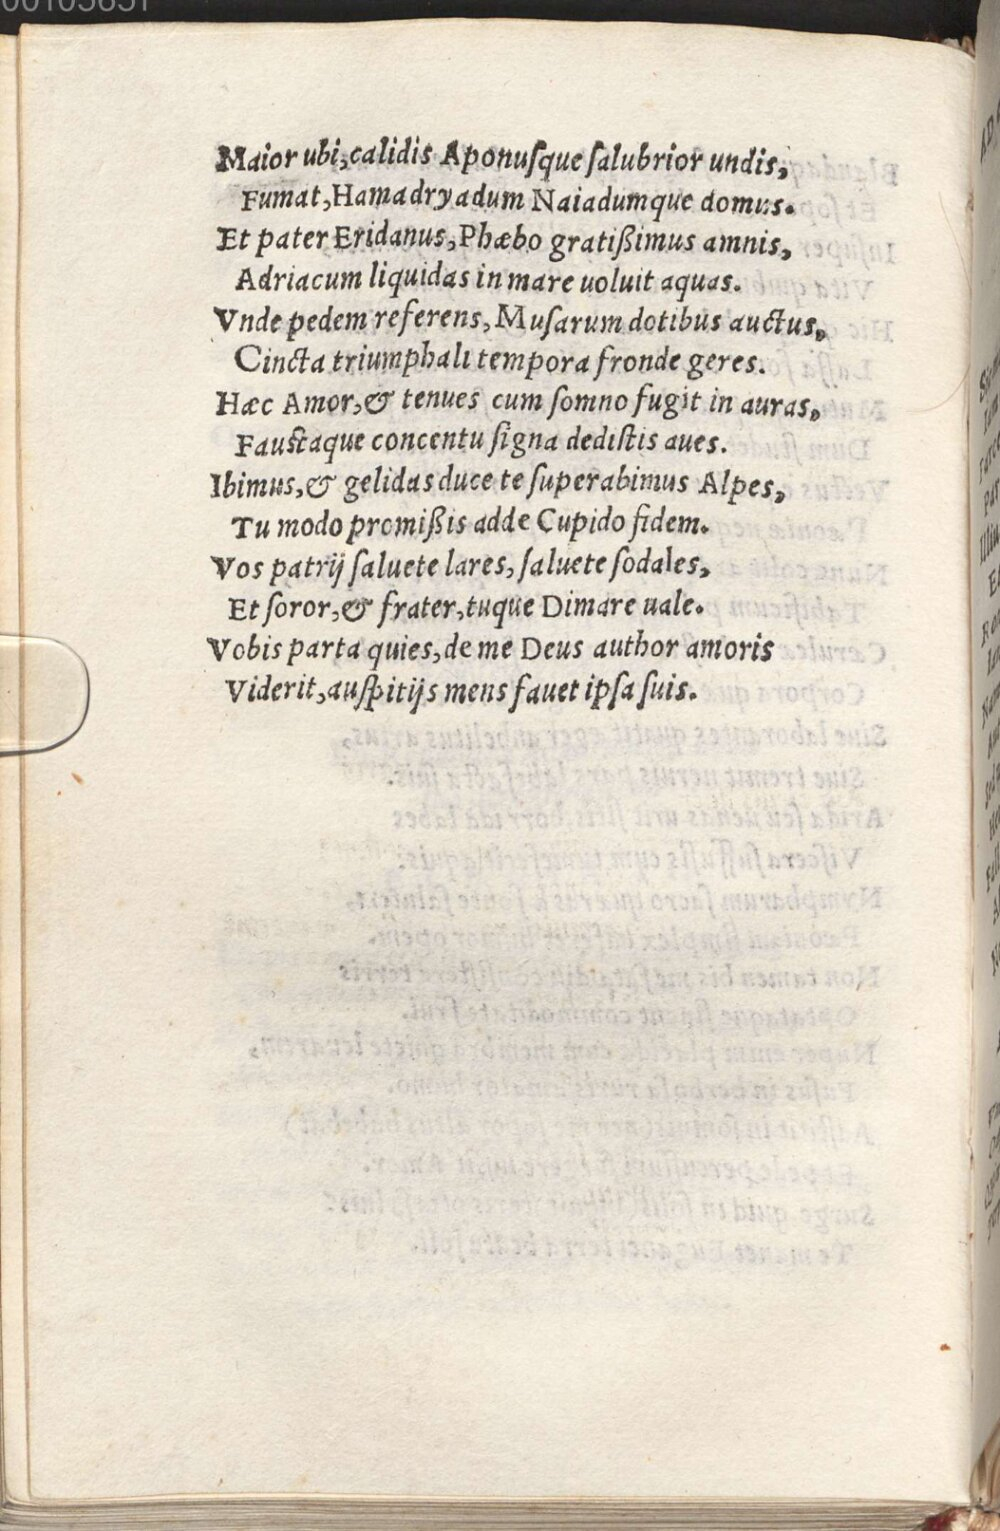 Maior ubi, calidis Aponusque salubrior undis,
Fumat, Hamadryadum Naiadumque domus.
Et pater Eridanus, Phæbo gratißimus amnis,
Adriacum liquidas in mare uoluit aquas.
Vnde pedem referens, Musarum dotibus auctus,
Cincta triumphali tempora fronde geres.
Hæc Amor, & tenues cum somno fugit in auras,
Faustaque concentu signa dedistis aues.
Ibimus, & gelidas duce te superabimus Alpes,
Tu modo promißis adde Cupido fidem.
Vos patrij saluete lares, saluete sodales,
Et soror, & frater, tuque Dimare uale.
Vobis parta quies, de me Deus author amoris
Viderit, auspitijs mens fauet ipsa suis.